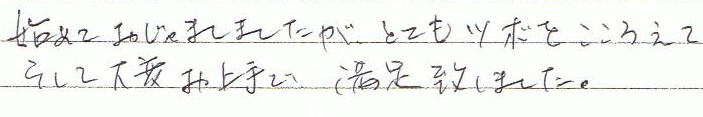 始めておじゃましましたが、とてもツボをこころえて
そして大変お上手で、満足致しました。